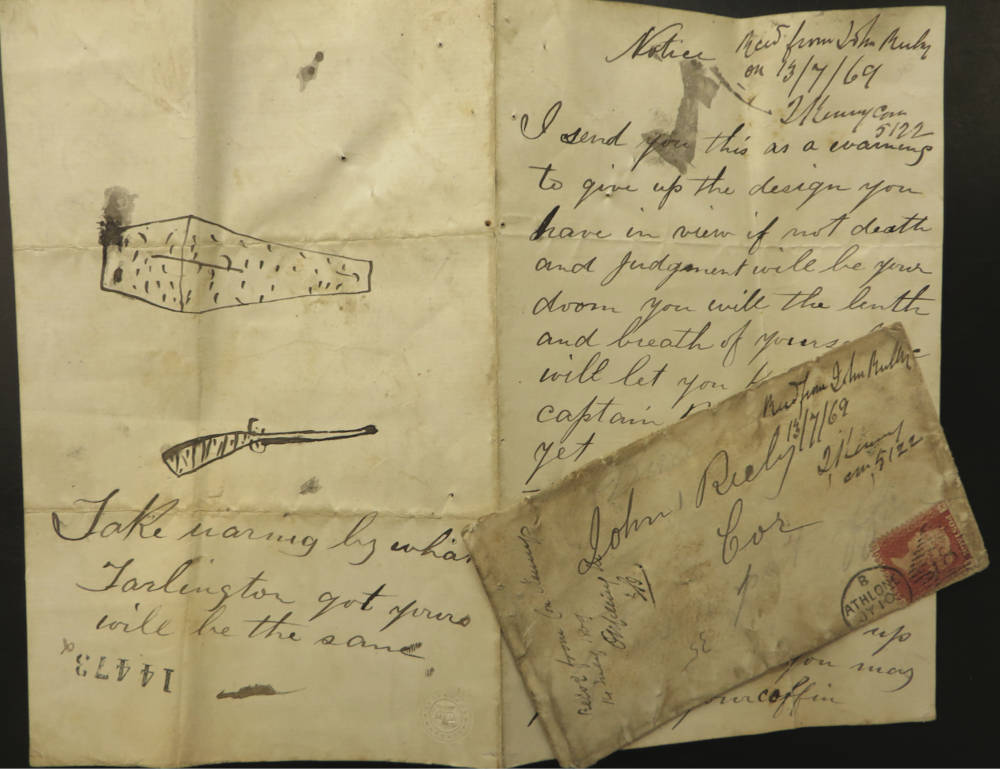 Take warnig by what
Tarlington got yours
will be the same
14473
Notice
Recd from John Riely
on 13/7/69
J Kenny Con
5122
I send you this as a warning
to give up the design you
have in view if not death
and Judgment will be your
doom you will the lenth
and breath of yours
will let you
captain
yet
up
you may
your coffin
Recd from John Riely
13/7/69
J Kenny
Con 5122
John Riely
Cor
B
ATHLONE
JY 10